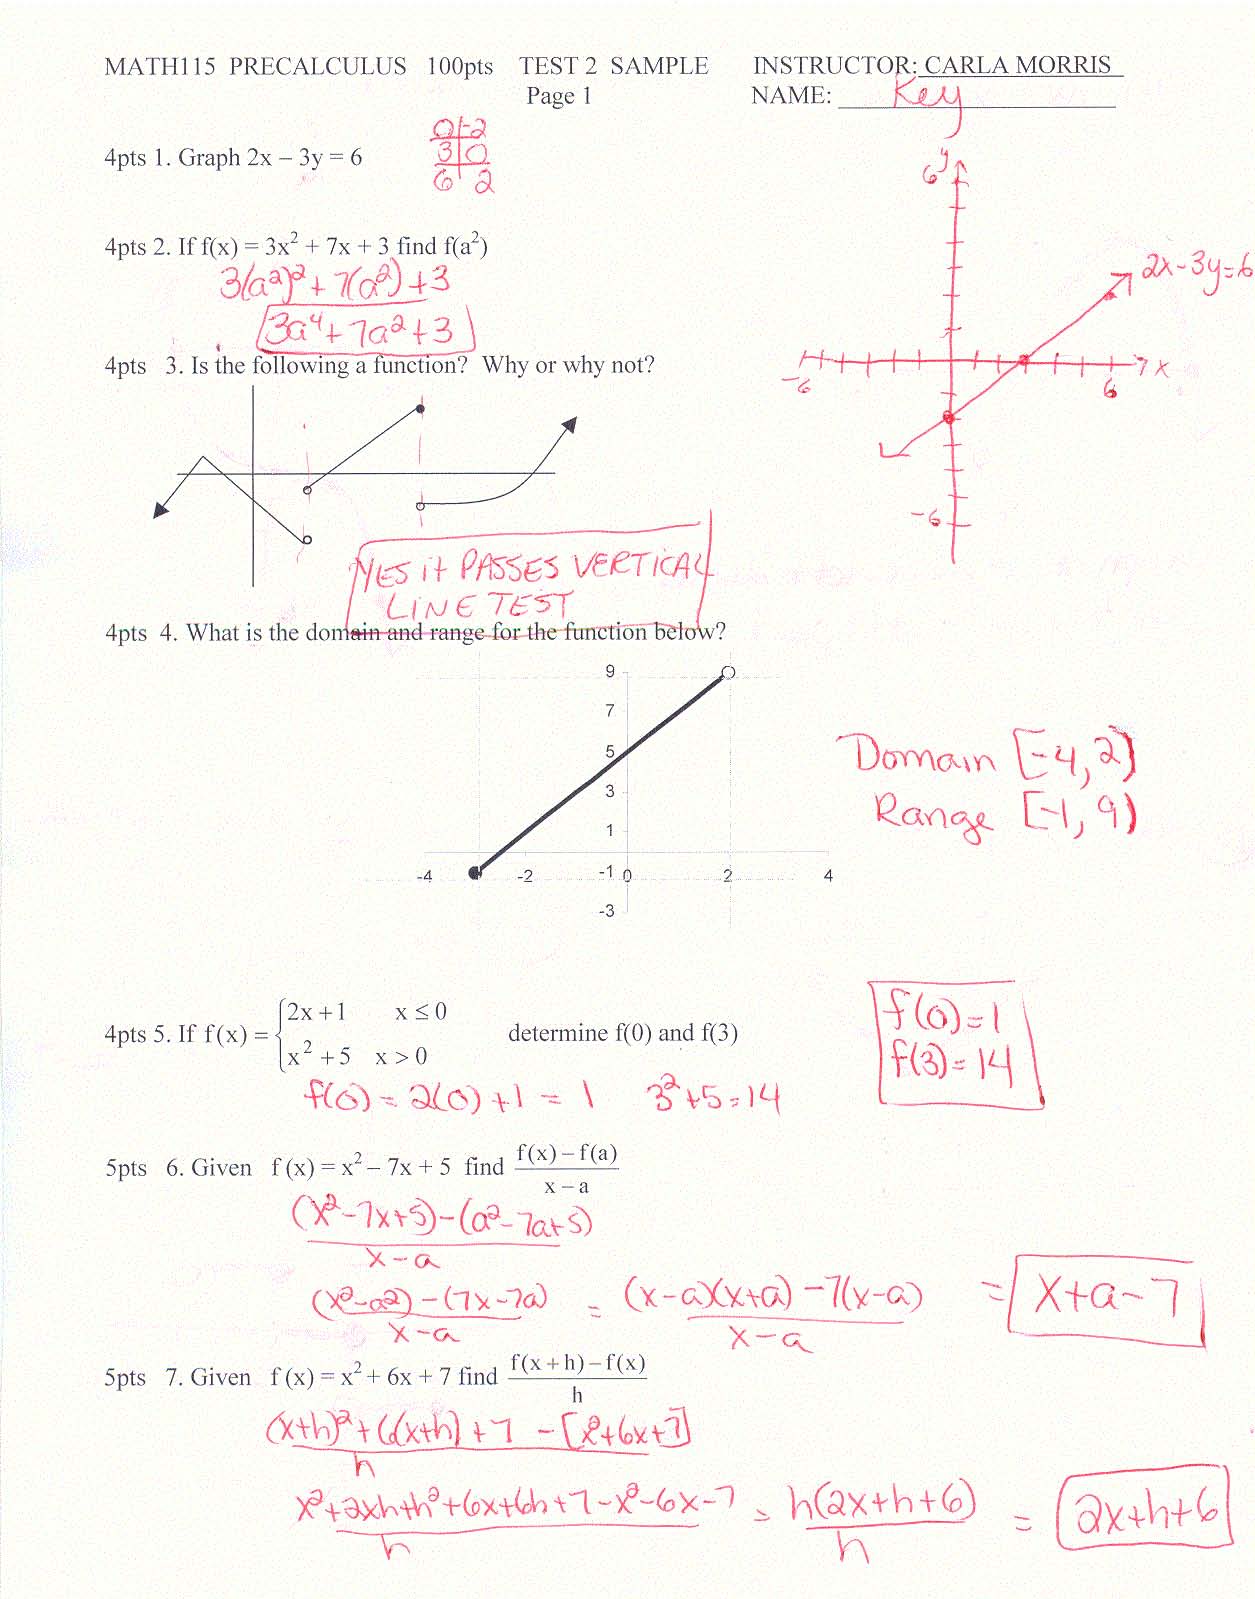 MATH115 PRECALCULUS 100pts TEST 2 SAMPLE INSTRUCTOR: CARLA MORRIS
Page 1 NAME: Key
0 | -2
4pts 1. Graph 2x – 3y = 6 3 | 0
6 2
6 y
2x-3y=6
-6 6 x
-6
4pts 2. If f(x) = 3x² + 7x + 3 find f(a²)
3(a²)² + 7(a²) + 3
3a⁴ + 7a² + 3
4pts 3. Is the following a function? Why or why not?
YES it PASSES VERTICAL
LINE TEST
4pts 4. What is the domain and range for the function below?
9
7
5
3
1
-4 -2 -1 0 2 4
-3
Domain [-4, 2)
Range [-1, 9)
4pts 5. If f(x) = {2x+1 x ≤ 0
x² +5 x > 0 determine f(0) and f(3)
f(0) = 2(0) + 1 = 1 3²+5=14
f(0)=1
f(3)=14
5pts 6. Given f (x) = x² – 7x + 5 find f(x) – f(a)
x – a
(x²-7x+5)-(a²-7a+5)
x-a
(x²-a²)-(7x-7a) = (x-a)(x+a)-7(x-a) = x+a-7
x-a x-a
5pts 7. Given f (x) = x² + 6x + 7 find f(x + h) – f(x)
h
(x+h)²+6(x+h)+7 -[x²+6x+7]
h
x²+2xh+h²+6x+6h+7-x²-6x-7 = h(2x+h+6) = 2x+h+6
h h